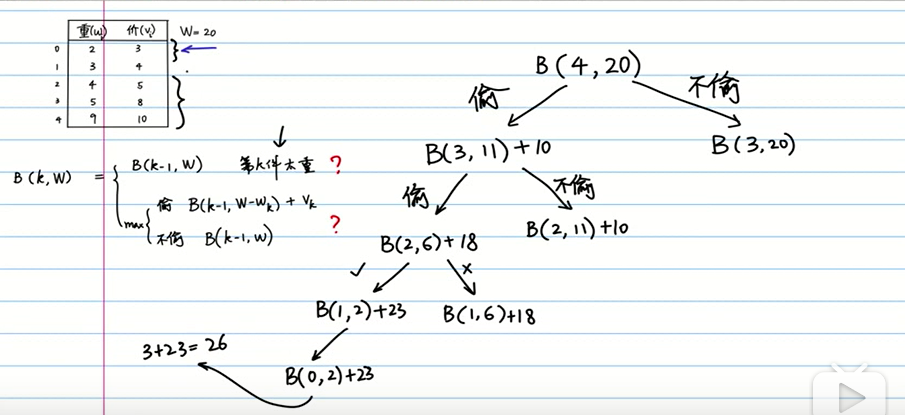 重(wᵢ) 价(vᵢ) W=20
0 2 3
1 3 4
2 4 5
3 5 8
4 9 10
B(k,W) =
B(k-1,W) 第k件太重 ?
max
偷 B(k-1,W-wk)+vk
不偷 B(k-1,W)
?
B(4,20)
偷 不偷
B(3,11)+10 B(3,20)
偷 不偷
B(2,6)+18 B(2,11)+10
✓ ×
B(1,2)+23 B(1,6)+18
B(0,2)+23
3+23=26